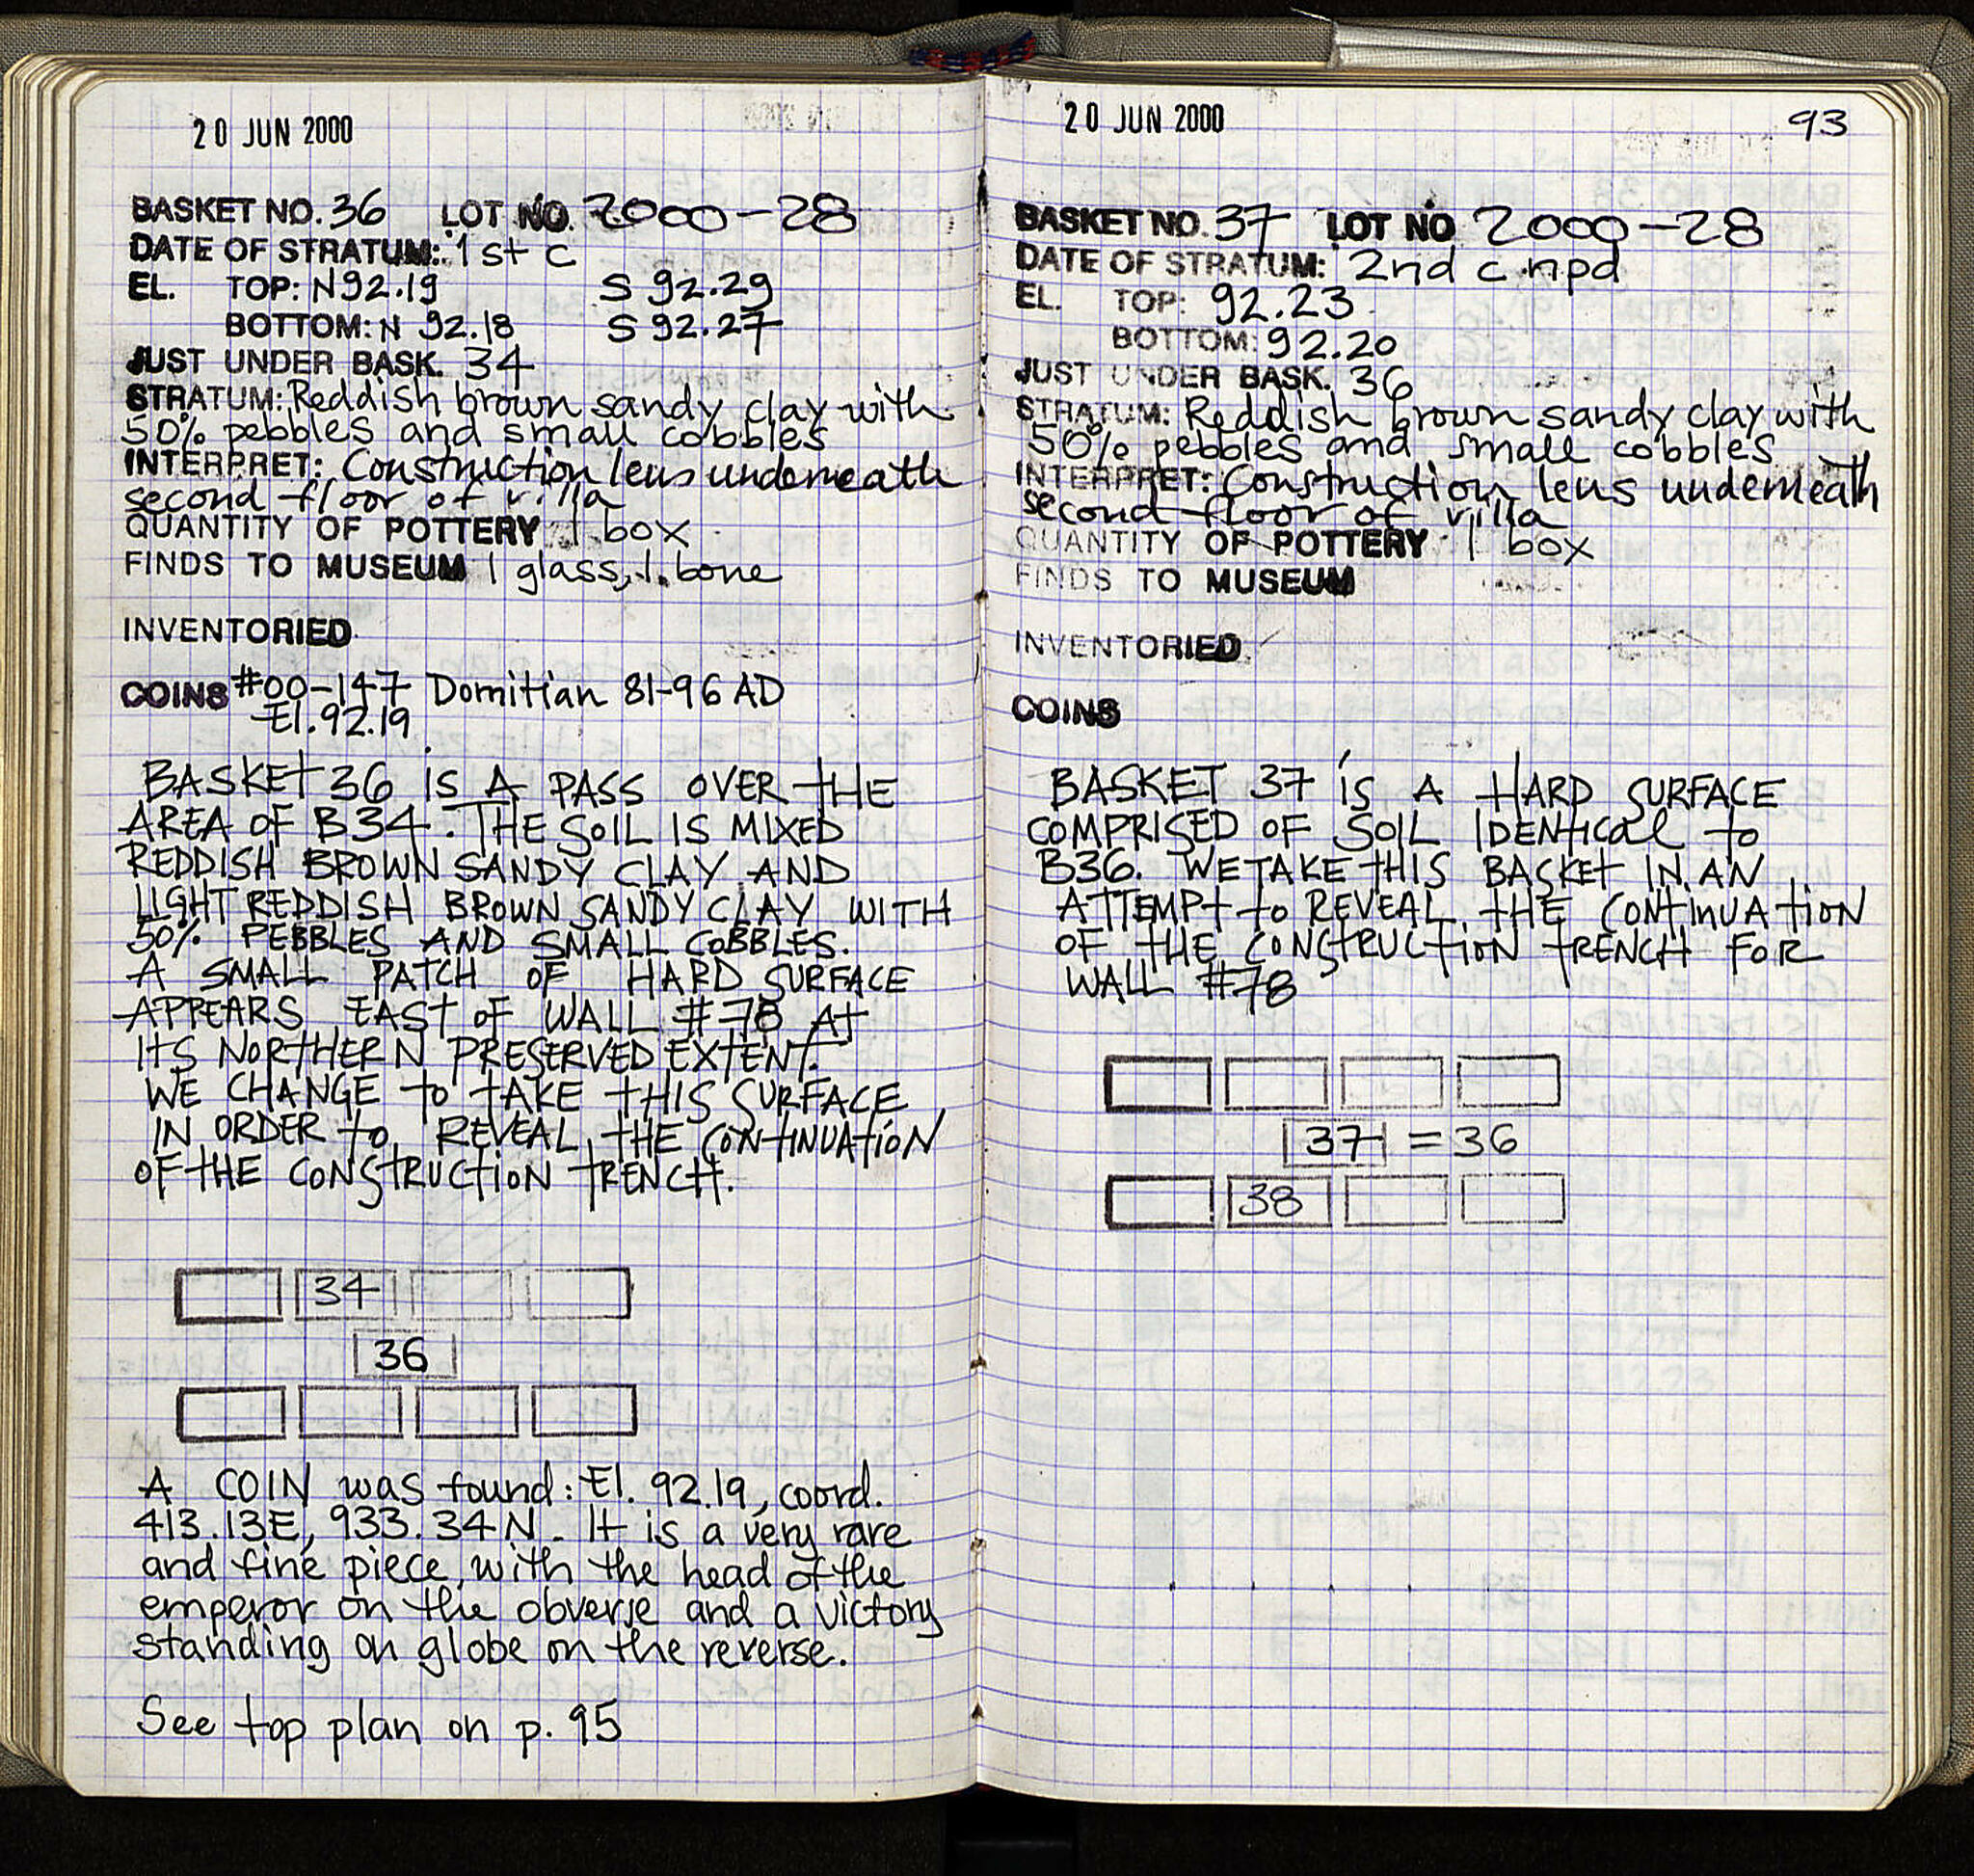 20 JUN 2000
BASKET NO. 36 LOT NO. 2000-28
DATE OF STRATUM: 1st c
EL. TOP: N 92.19 S 92.29
BOTTOM: N 92.18 S 92.27
JUST UNDER BASK. 34
STRATUM: Reddish brown sandy clay with
50% pebbles and small cobbles
INTERPRET: Construction lens underneath
second floor of villa
QUANTITY OF POTTERY 1 box
FINDS TO MUSEUM 1 glass, 1 bone
INVENTORIED
COINS #00-147 Domitian 81-96 AD
El. 92.19
BASKET 36 IS A PASS OVER THE
AREA OF B34. THE SOIL IS MIXED
REDDISH BROWN SANDY CLAY AND
LIGHT REDDISH BROWN SANDY CLAY WITH
50% PEBBLES AND SMALL COBBLES.
A SMALL PATCH OF HARD SURFACE
APPEARS EAST OF WALL #78 AT
ITS NORTHERN PRESERVED EXTENT.
WE CHANGE TO TAKE THIS SURFACE
IN ORDER TO REVEAL THE CONTINUATION
OF THE CONSTRUCTION TRENCH.
34
36
A COIN was found: El. 92.19, coord.
413.13E, 933.34N. It is a very rare
and fine piece, with the head of the
emperor on the obverse and a victory
standing on globe on the reverse.
See top plan on p. 95
20 JUN 2000 93
BASKET NO. 37 LOT NO 2000-28
DATE OF STRATUM: 2nd c npd
EL. TOP: 92.23
BOTTOM: 92.20
JUST UNDER BASK. 36
STRATUM: Reddish brown sandy clay with
50% pebbles and small cobbles
INTERPRET: Construction lens underneath
second floor of villa
QUANTITY OF POTTERY 1 box
FINDS TO MUSEUM
INVENTORIED
COINS
BASKET 37 IS A HARD SURFACE
COMPRISED OF SOIL IDENTICAL TO
B36. WE TAKE THIS BASKET IN AN
ATTEMPT TO REVEAL THE CONTINUATION
OF THE CONSTRUCTION TRENCH FOR
WALL #78
37 = 36
38